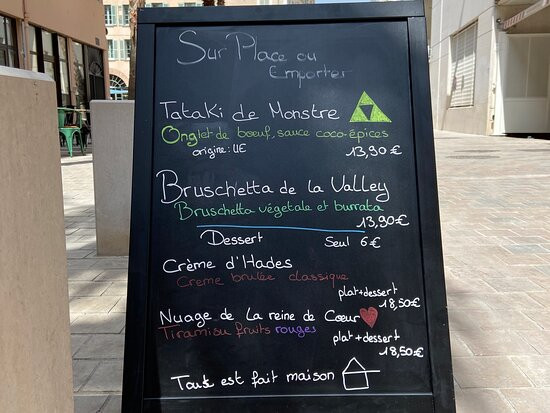 Sur Place ou
Emporter
Tataki de Monstre
Onglet de boeuf, sauce coco-épices
origine: UE 13,90€
Bruschetta de la Valley
Bruschetta végetale et burrata
13,90€
Dessert Seul 6€
Crème d'Hades
Creme brulée classique
plat+dessert
18,50€
Nuage de La reine de Cœur
Tiramisu fruits rouges
plat+dessert
18,50€
Tout est fait maison